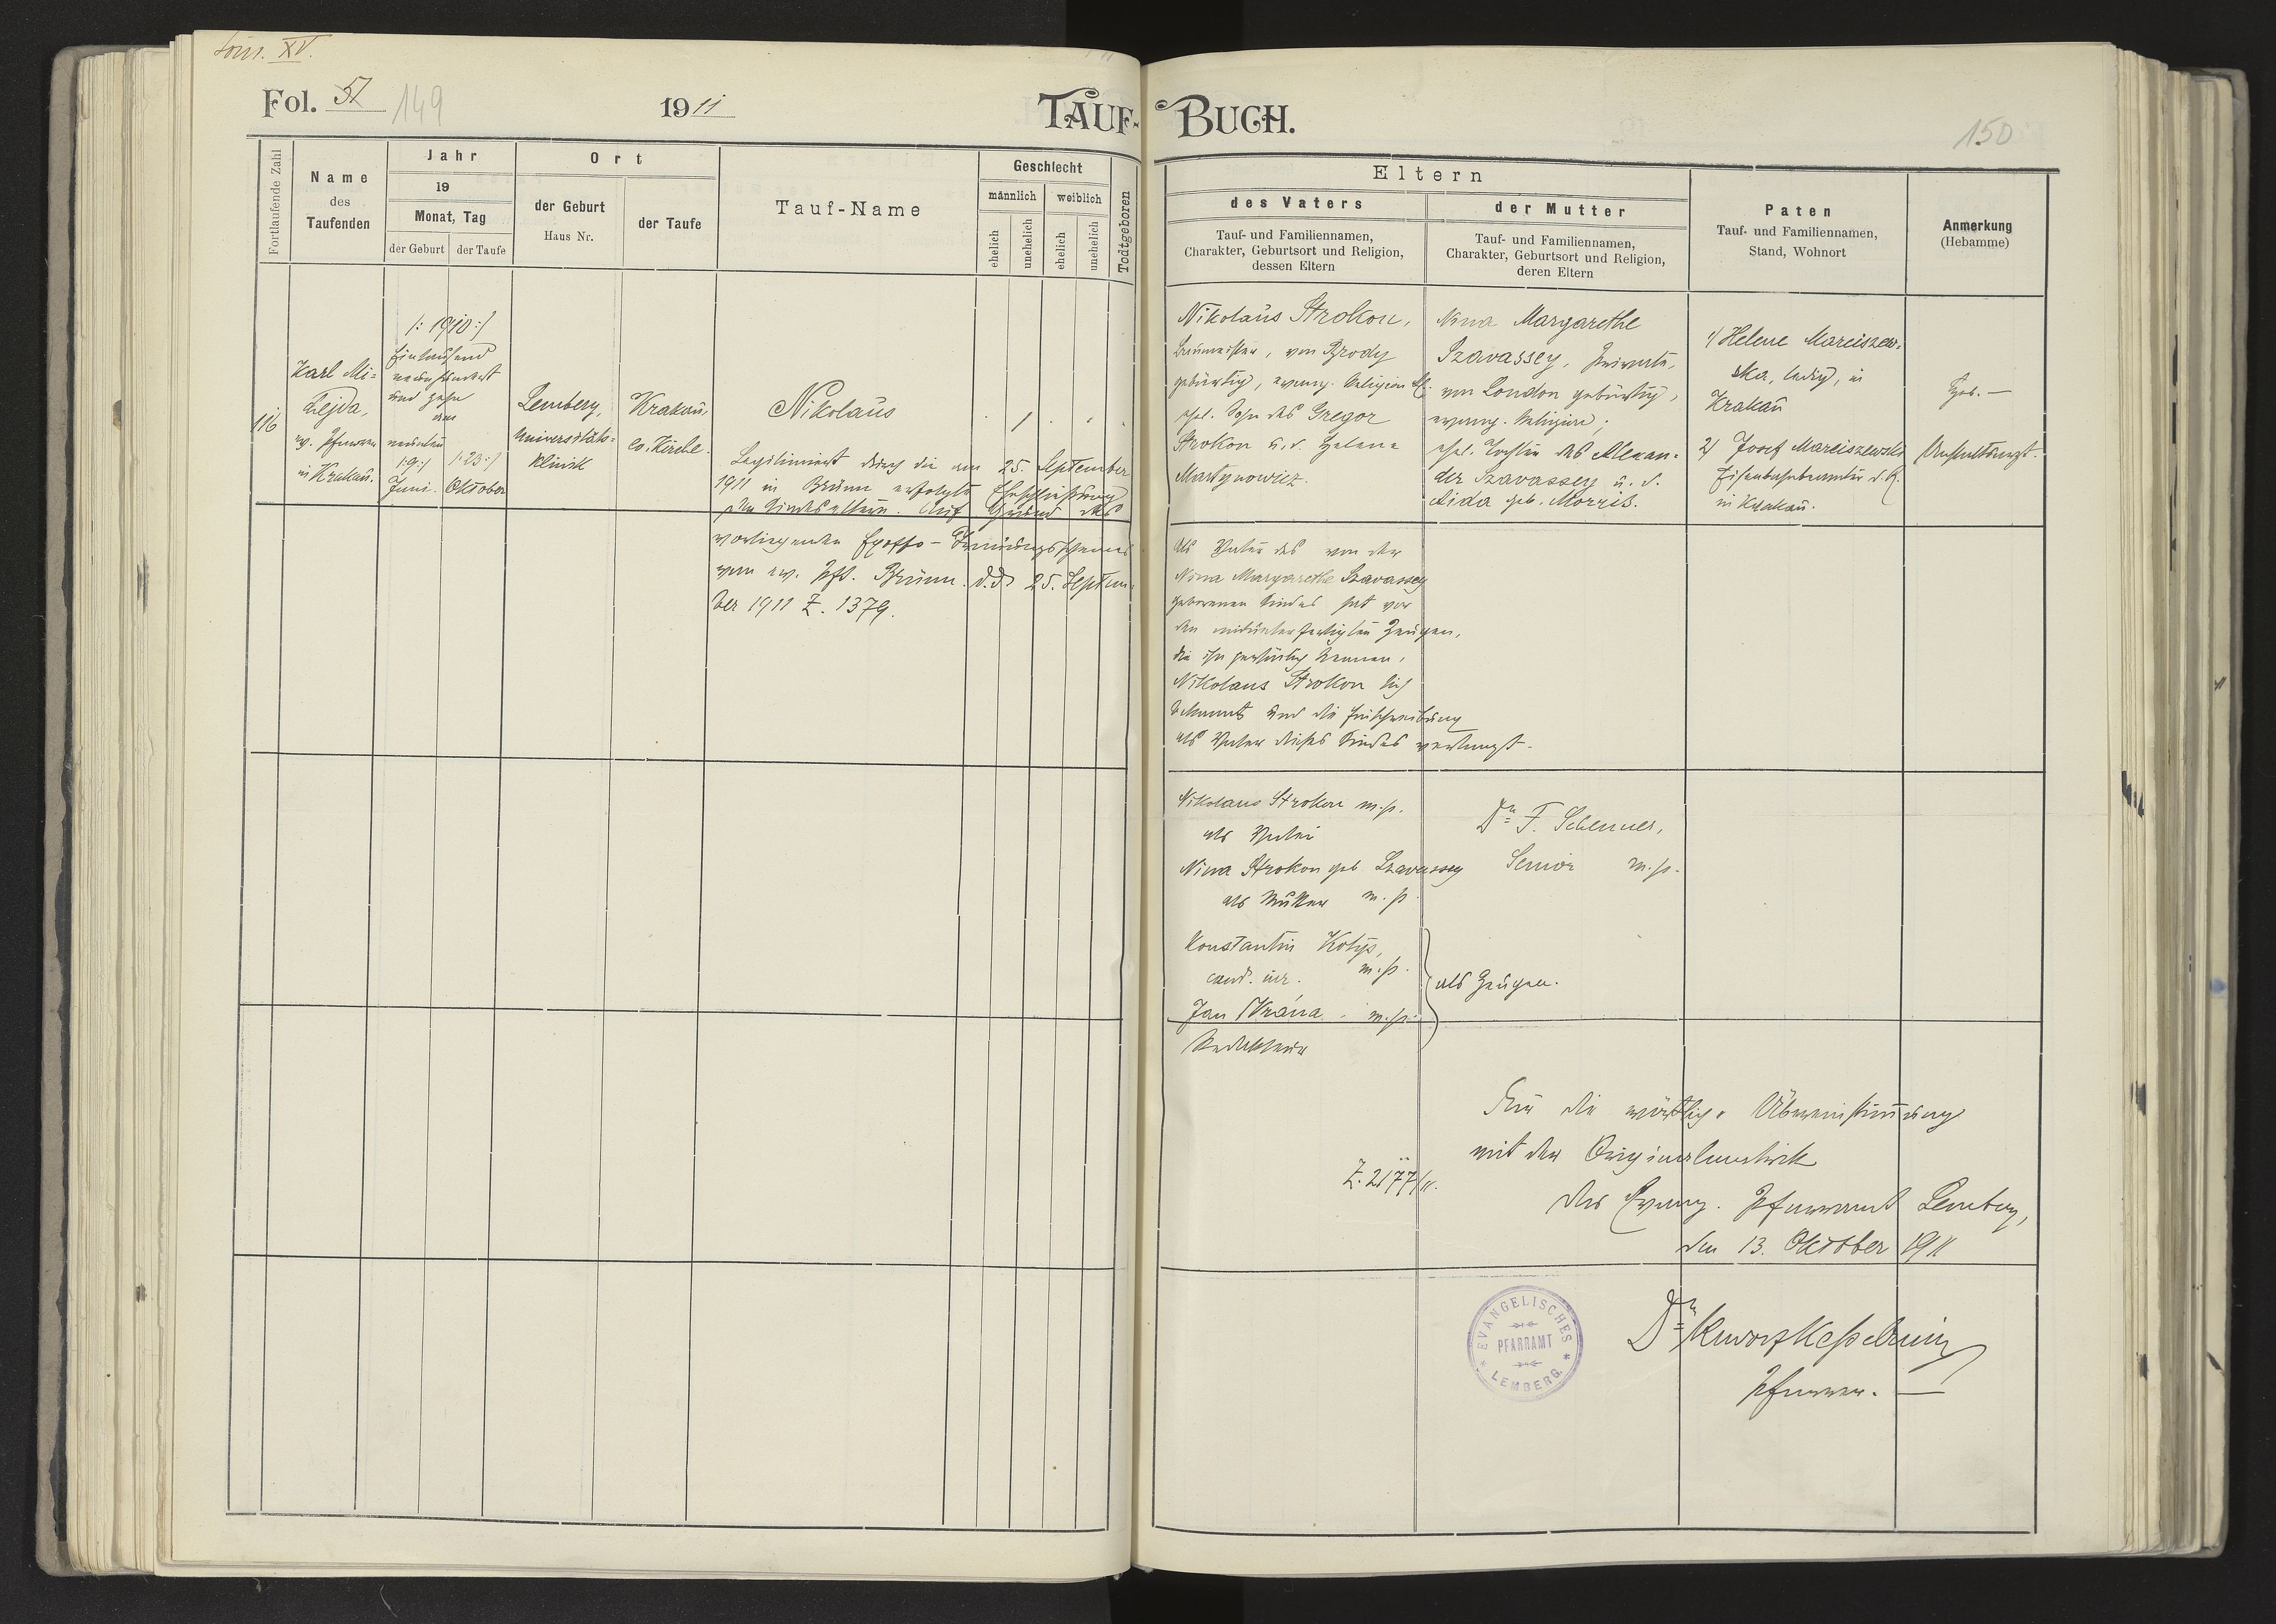 tom. XV.
Fol. 57 149
1911
TAUF-BUCH.
150
Fortlaufende Zahl
Name
des
Taufenden
Jahr
19
Monat, Tag
der Geburt
der Taufe
Ort
der Geburt
Haus Nr.
der Taufe
Tauf-Name
Geschlecht
männlich
weiblich
ehelich
unehelich
ehelich
unehelich
Todtgeboren
Eltern
des Vaters
Tauf- und Familiennamen,
Charakter, Geburtsort und Religion,
dessen Eltern
der Mutter
Tauf- und Familiennamen,
Charakter, Geburtsort und Religion,
deren Eltern
Paten
Tauf- und Familiennamen,
Stand, Wohnort
Anmerkung
(Hebamme)
116
Karl Mi-
lejda,
ev. Pfarrer
in Krakau.
/: 1910 :/
Eintausend
neunhundert
und zehn
am
neunten
/: 9 :/
Juni.
/: 23 :/
Oktober
Lemberg,
Universitäts-
klinik
Krakau,
ev. Kirche.
Nikolaus
Legitimiert durch die am 25. September
1911 in Brünn erfolgte Eheschließung
der Kindeseltern. Auf Grund des
vorliegenden Exoffo-Trauungsscheines
vom ev. Pfr. Brünn d.d. 25. Septem-
ber 1911 Z. 1379.
Nikolaus Strokon,
Baumeister, von Brody
gebürtig, evang. Religion
ehel. Sohn des Gregor
Strokon u. d. Helena
Martynowicz.
Nina Margarethe
Szavassey, Private,
von London gebürtig,
evang. Religion;
ehel. Tochter des Alexan-
der Szavassey u. d.
Aida geb. Morris.
1/ Helene Marciszew-
ska, ledig, in
Krakau
2/ Josef Marciszewski
Eisenbahnbeamter
in Krakau.
Geb. —
Anstaltsarzt.
Als Vater des von der
Nina Margarethe Szavassey
geborenen Kindes hat vor
den mitunterfertigten Zeugen,
die ihn persönlich kennen,
Nikolaus Strokon sich
bekannt und die Einschreibung
als Vater dieses Kindes verlangt.
Nikolaus Strokon m.p.
als Vater
Nina Strokon geb. Szavassey
als Mutter m.p.
Konstantin Kotys,
cand. iur. m.p.
Jan Vrána m.p.
Redakteur
als Zeugen.
Dr. F.
Senior m.p.
Für die wörtliche Übereinstimmung
mit der Originalmatrik
Z. 2177/11.
Das Evang. Pfarramt Lemberg,
den 13. Oktober 1911
EVANGELISCHES
PFARRAMT
LEMBERG
Dr. Kesselring
Pfarrer. —